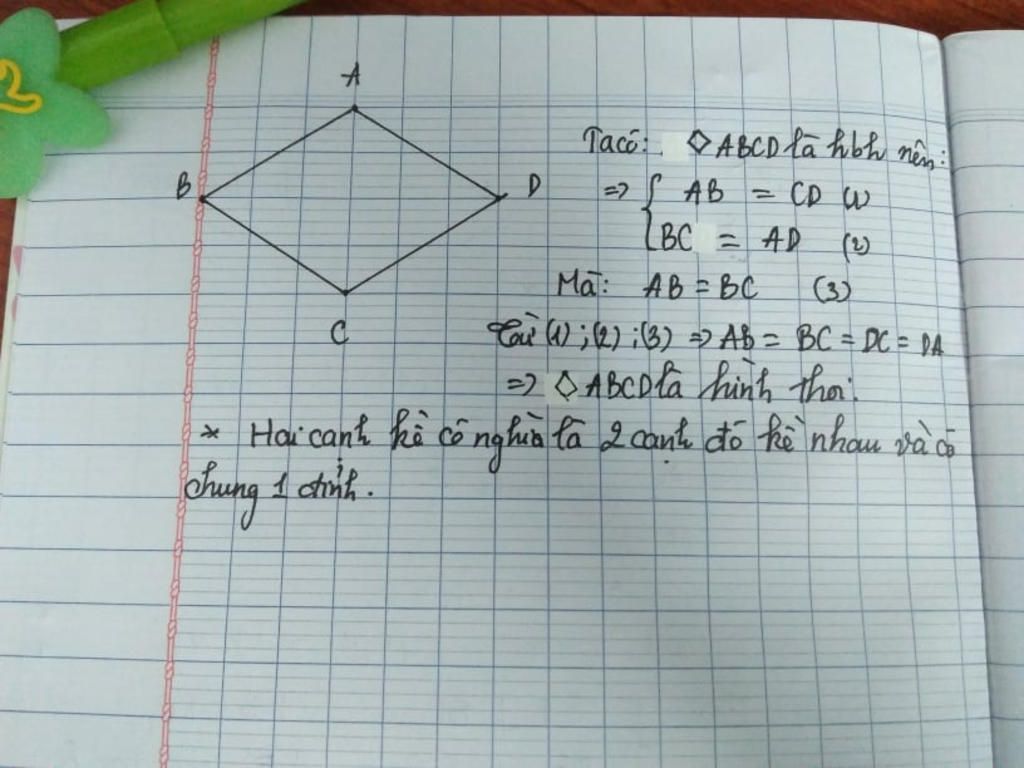 2
A
B
D
C
Ta có: ◇ABCD là hbh nên:
=> { AB = CD (1)
BC = AD (2)
Mà: AB = BC (3)
Từ (1); (2); (3) => AB = BC = DC = DA
=> ◇ABCD là hình thoi.
* Hai cạnh kề có nghĩa là 2 cạnh đó kề nhau và có
chung 1 đỉnh.